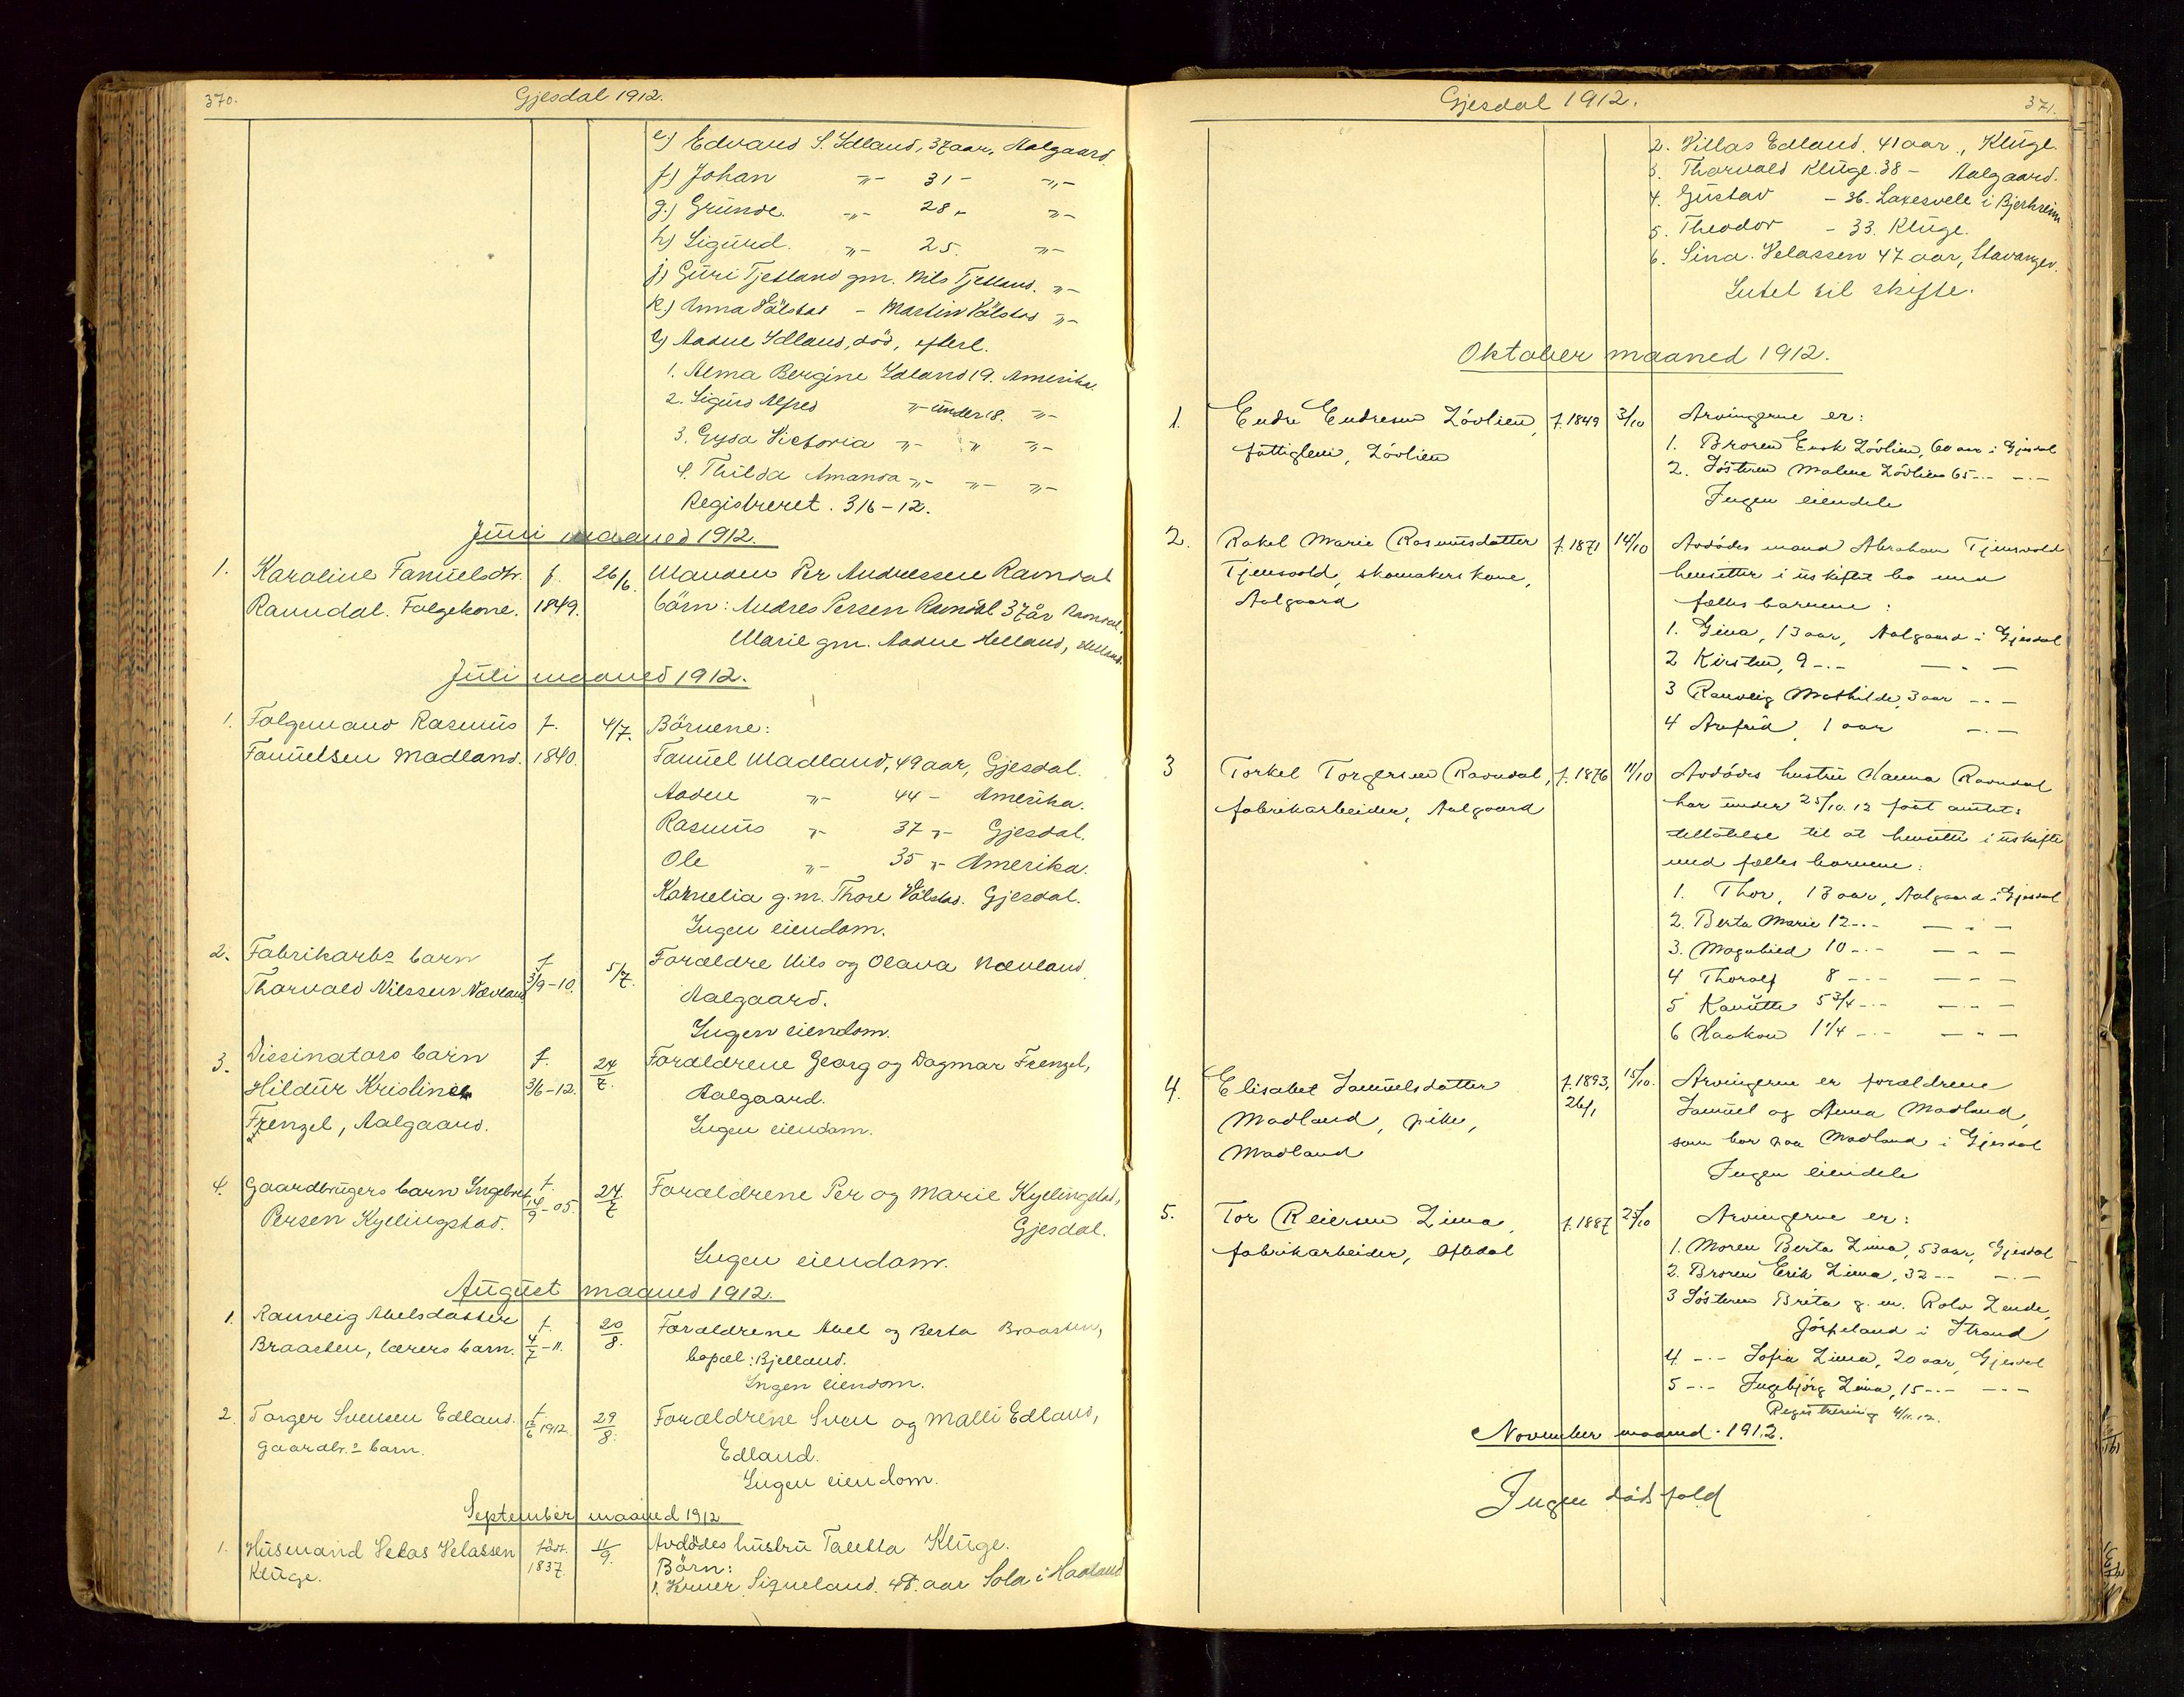 370.
Gjesdal 1912.
e.) Edvard S. Idland, 37 aar, Aalgaard.
f.) Johan -"- 31 - -"-
g.) Grunde. -"- 28 - -"-
h.) Sigurd. -"- 25. -"-
j.) Guri Tjetland gm. Nils Tjetland. -"-
k.) Anna Vølstad - Martin Vølstad -"-
l.) Aadne Idland, død, efterl.
1. Alma Bergine Idland 19. Amerika.
2. Sigurd Alfred -"- under 18. -"-
3. Gyda Victoria -"- " -"-
4. Thilda Amanda -"- -"- -"-
Registreret. 3/6-12.
Juni maaned 1912.
1. Karoline Fanuelsdtr. f. 26/6. Manden Per Andreassen Ravndal
Ravndal. Folgekone. 1849. børn: Andres Persen Ravndal 37 år Ravndal.
Marie gm. Aadne Helland, Helland.
Juli maaned 1912.
1. Folgemand Rasmus f. 4/7. Børnene:
Fanuelsen Madland. 1840. Fanuel Madland, 49 aar, Gjesdal.
Aadne -"- 44 - Amerika.
Rasmus -"- 37 -"- Gjesdal.
Ole -"- 35 -"- Amerika.
Kornelia g.m. Thore Vølstad. Gjesdal.
Ingen eiendom.
2. Fabrikarbs barn f. 5/7. Forældre Nils og Olava Nævland
Thorvald Nilssen Nævland 3/9-10. Aalgaard.
Ingen eiendom.
3. Dessinatørs barn f. 24/7. Forældrene Georg og Dagmar Frenzel,
Hildur Kristine 3/6-12. Aalgaard.
Frenzel, Aalgaard. Ingen eiendom.
4. Gaardbrugers barn Ingebret f. 24/7 Forældrene Per og Marie Kyllingstad,
Persen Kyllingstad. 14/9-05. Gjesdal.
Ingen eiendom.
August maaned 1912.
1. Ranveig Abelsdatter f. 20/8. Forældrene Abel og Berta Braasten,
Braasten, lærers barn. 4/7-11. bopæl: Bjelland.
Ingen eiendom.
2. Torger Svensen Edland. f. 29/8. Forældrene Sven og Malli Edland,
gaardbr.s barn. 1912. Edland.
Ingen eiendom.
September maaned 1912
1. Husmand Velas Velassen født. 11/9. Avdødes hustru Taletta Kluge.
Kluge. 1837. Børn:
1. Siqueland. 48. aar Sola i Haaland
Gjesdal 1912.
371.
2. Villas Edland. 41 aar., Kluge.
3. Thorvald Kluge. 38 - Aalgaard.
4. Gustav - 36. Laxesvele i Bjerkreim
5. Theodor - 33. Kluge.
6. Sina Velassen 47 aar, Stavanger.
Intet til skifte.
Oktober maaned 1912.
1. Endre Endresen Løvlien, f. 1849 3/10 Arvingerne er:
fattiglem, Løvlien 1. Broren Enok Løvlien, 60 aar i Gjesdal
2. Søsteren Malene Løvlien 65 -.- -.-
Ingen eiendele
2. Rakel Marie Rasmusdatter f. 1871 14/10 Avdødes mand Abraham Tjensvold
Tjensvold, skomakers kone, hensitter i uskiftet bo med
Aalgaard fælles barnene:
1. Gina, 13 aar, Aalgaard i Gjesdal
2 Kirsten, 9 -.- - . -
3 Ranveig Mathilde, 3 aar - . -
4 Arnfrid, 1 aar - . -
3 Torkel Torgersen Ravndal, f. 1876 11/10 Avdødes hustru Hanna Ravndal
fabrikarbeider, Aalgaard har under 25/10.12 faat amtets
tillatelse til at hensitte i uskifte
med fælles barnene:
1. Thor, 13 aar, Aalgaard i Gjesdal
2. Berta Marie 12 -.- - . -
3. Magnhild 10 -.- - . -
4 Thoralf 8 -.- - . -
5 Kanutte 5 3/4 -.- - . -
6 Haakon 1 1/4 -.- - . -
4. Elisabet Samuelsdatter f. 1893, 15/10. Arvingerne er forældrene
Madland, pike, 26/1 Samuel og Anna Madland,
Madland som bor paa Madland i Gjesdal
Ingen eiendele
5. Tor Reiersen Lima, f. 1887 25/10 Arvingerne er:
fabrikarbeider, Oftedal 1. Moren Berta Lima, 53 aar, Gjesdal
2. Broren Erik Lima, 32 -.- -.-
3 Søsteren Brita g. m. Rolv Lende,
Jørpeland i Strand
4. -.- Sofia Lima, 20 aar, Gjesdal
5 -.- Ingebjørg Lima, 15 -.- - . -
Registrering 4/11.12.
November maaned 1912.
Ingen dødsfald